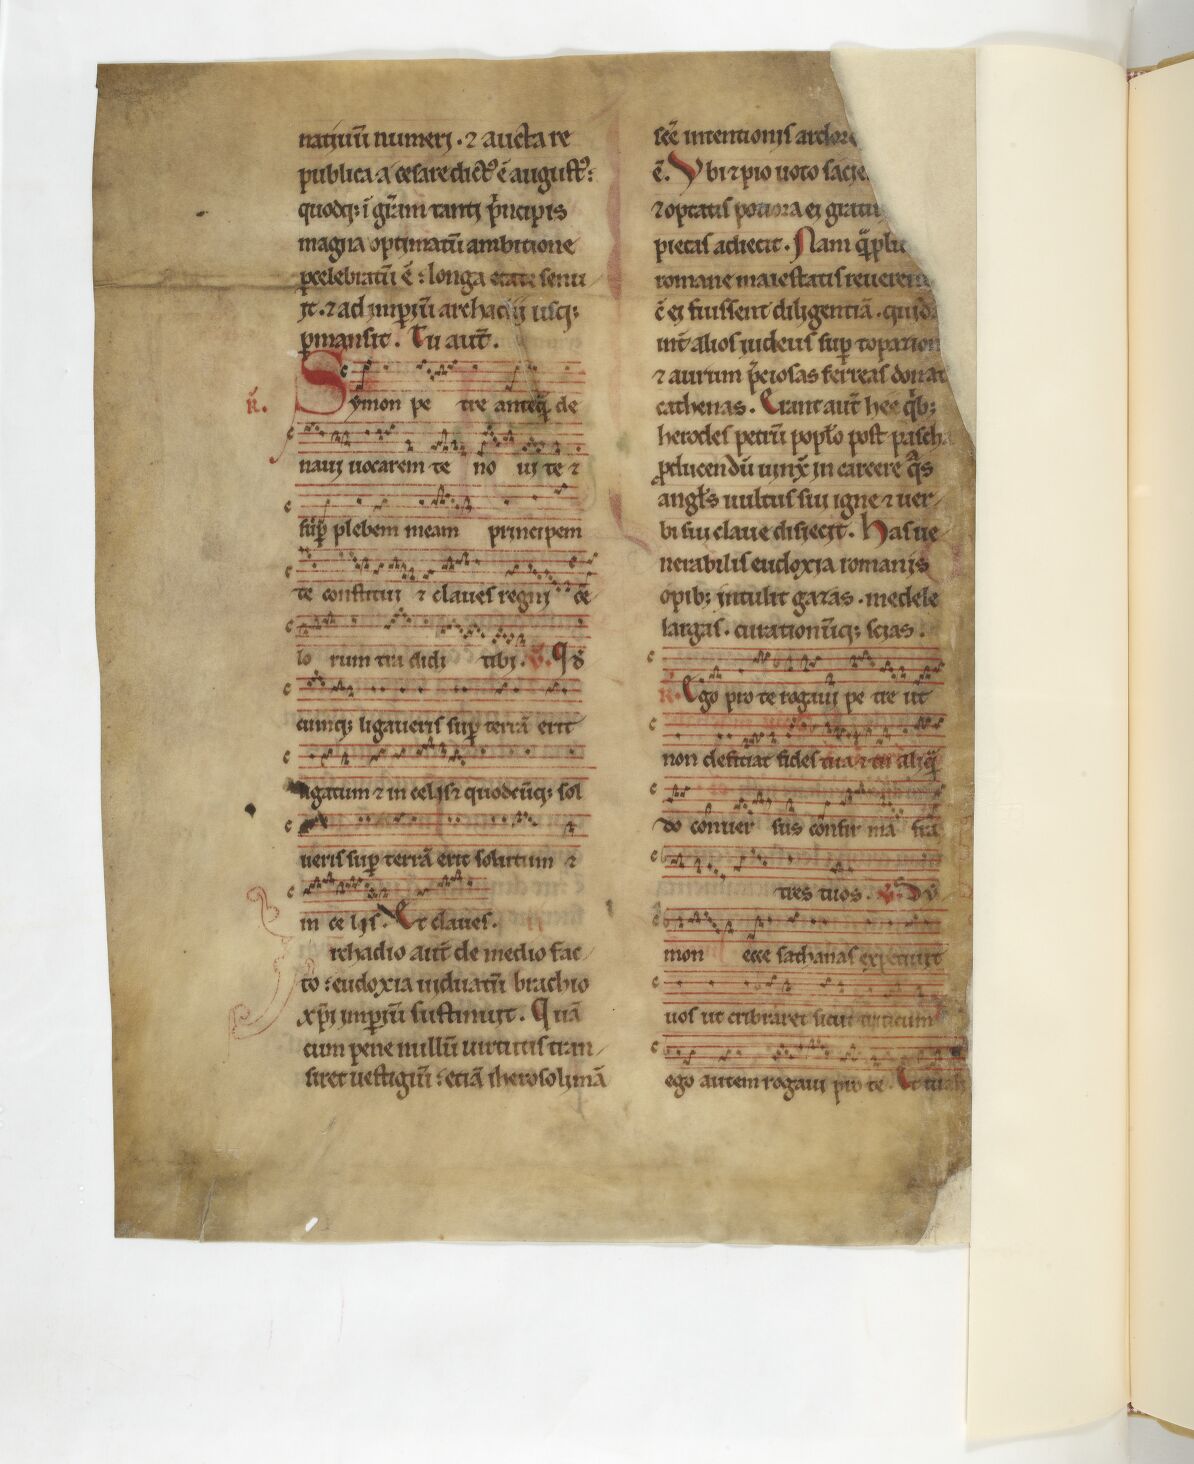 natiuū numerj · ⁊ aucta re
publica a cesare dict᷒ ē august᷒:
quodq; ī gr̄am tantj pͥncipis
magna optimatū ambitione
ꝑcelebratū ē: longa etate senu
jt · ⁊ ad imꝑiū archadij usq;
ꝑmansit. Tu aut̄.
R̄. Symon pe tre anteq̄ de
nauj uocarem te no uj te ⁊
sup̄ plebem meam principem
te constituj ⁊ claues regnj ce
lo rum tra didi tibj. V. Qd
cunq; ligaueris suꝑ terrā erit
ligatum ⁊ in celis ⁊ quodcūq; sol
ueris suꝑ terrā erit solutum ⁊
in ce lis. Et claues.
Archadio aut̄ de medio fac-
to: eudoxia uiduatū brachio
xp̄i imꝑiū sustinuit. Quā
cum pene nullū uirtutis tran-
siret uestigiū: etiā iherosolimā
scē intentionis ardore
ē. Vbi ⁊ pio uoto
⁊ optatis potiora ej
pietas adiecit. Nam
romane maiestatis
ē ej fuissent diligentiā.
int̄ alios iudeus suꝑ
⁊ aurum p̄ciosas ferreas
cathenas. Erant aut̄ hee qͥb;
herodes petrū popl̄o post pascha
ꝓducendū uinx̄ in carcere qͣs
angl̄s uultus sui igne ⁊ uer-
bi sui claue disiecit. Has ue
nerabilis eudoxia romanis
opib; intulit gazas · medele
largas · curationūq; scias.
R. Ego pro te rogaui pe tre ut
non deficiat fides tua ⁊ tu aliq̄
do cōuer sus cōfir ma frā
tres tuos. V. Sy
mon ecce sathanas expetiuit
uos ut cribraret sicut triticum
ego autem rogaui pro te. Et tu